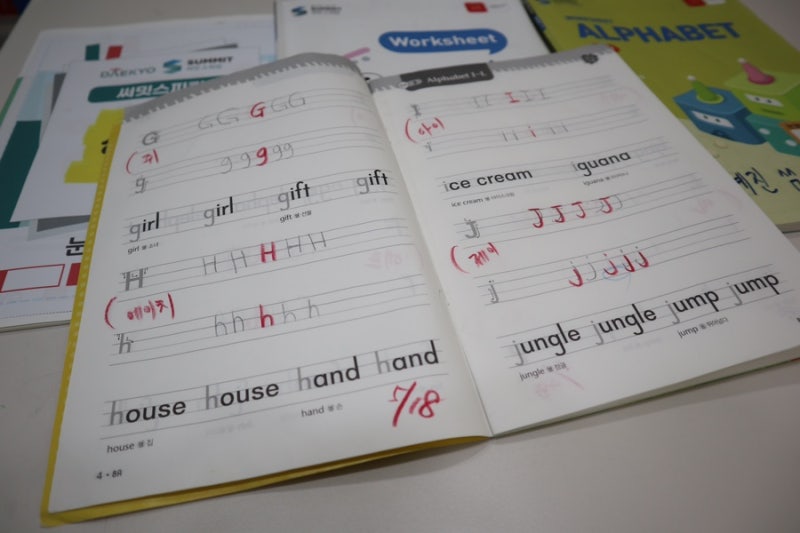 DAEKYO SUMMIT
씨밋스피킹
Worksheet
ALPHABET
G G G G G G
(지
g g g g g g
girl girl gift gift
girl 명 소녀
gift 명 선물
H H H H H H
(에이치
h h h h h h
house house hand hand
house 명 집
hand 명 손
7/18
4 • 8A
Alphabet I-L
I I I I I I
(아이
i i i i i i
ice cream iguana
ice cream 명 아이스크림
iguana 명 이구아나
J J J J J J
(제이
j j j j j j
jungle jungle jump jump
jungle 명 정글
jump 동 뛰어넘다